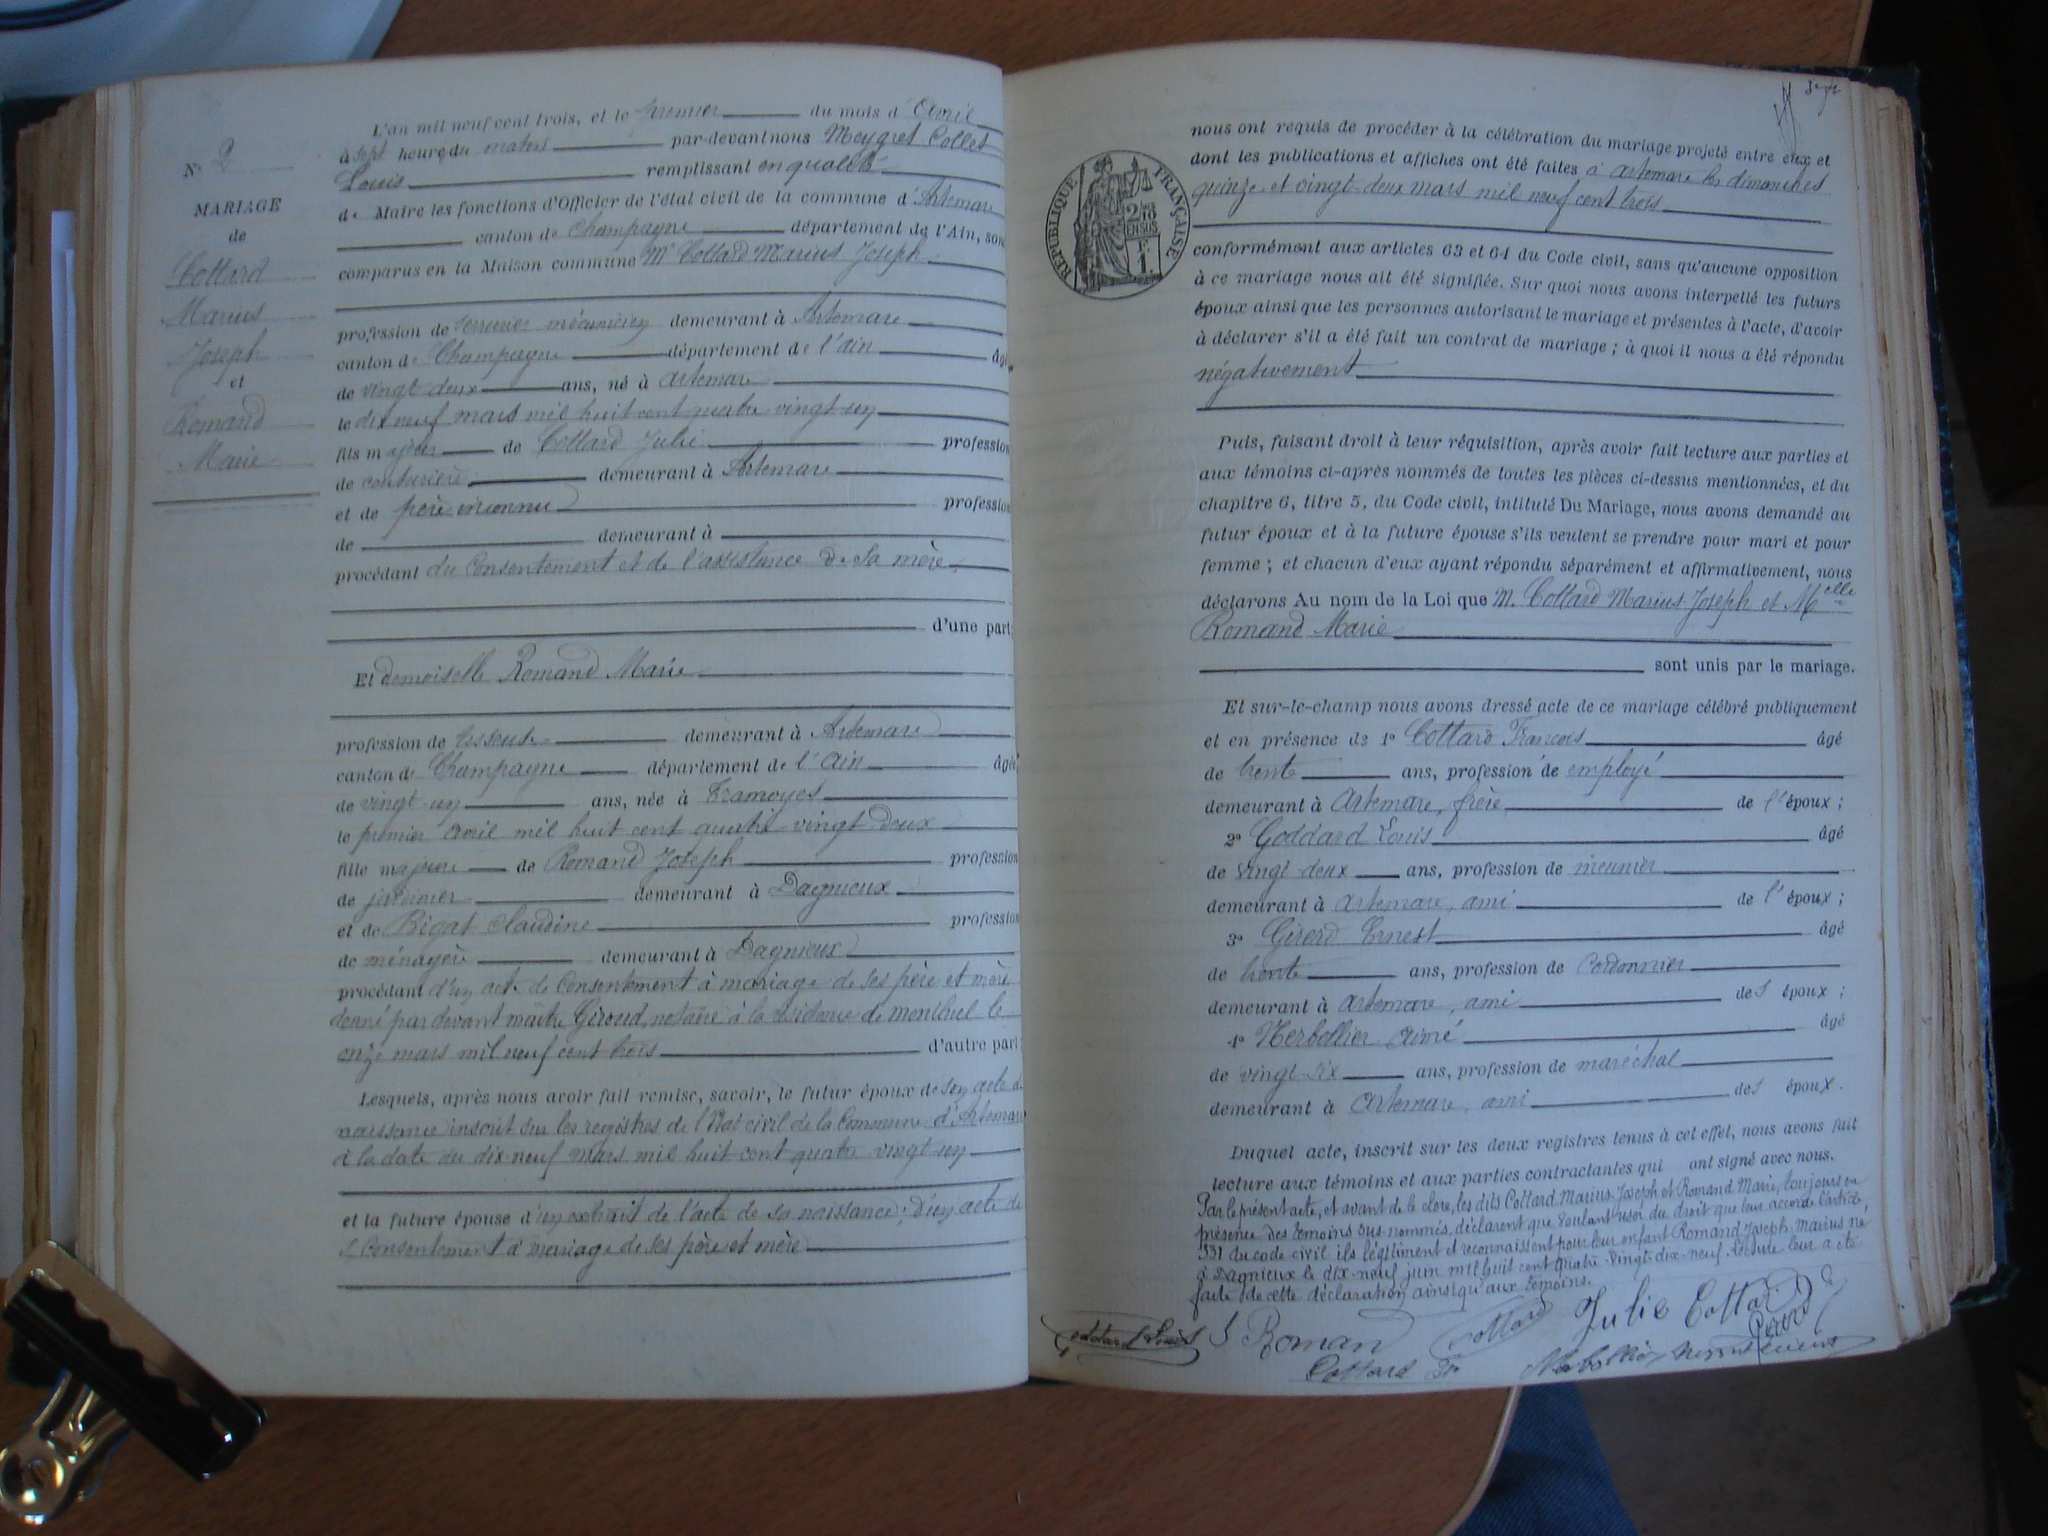 N° 2
MARIAGE
de
Cottard
Marius
Joseph
et
Romand
Marie
L'an mil neuf cent trois, et le premier du mois d'Avril
à sept heures du matin par-devant nous Meygret Collet
Louis remplissant en qualité
de Maire les fonctions d'Officier de l'état civil de la commune d'Artemare
canton de Champagne département de l'Ain, sont
comparus en la Maison commune Mr Cottard Marius Joseph
profession de serrurier mécanicien demeurant à Artemare
canton de Champagne département de l'ain âgé
de vingt deux ans, né à Artemare
le dix neuf mars mil huit cent quatre vingt un
fils majeur de Cottard Julie profession
de couturière demeurant à Artemare
et de père inconnu profession
de demeurant à
procédant du consentement et de l'assistance de sa mère
d'une part
Et demoiselle Romand Marie
profession de tisseuse demeurant à Artemare
canton de Champagne département de l'Ain âgée
de vingt un ans, née à Tramoyes
le premier avril mil huit cent quatre vingt deux
fille majeure de Romand Joseph profession
de jardinier demeurant à Dagnieux
et de Bigat Claudine profession
de ménagère demeurant à Dagnieux
procédant d'un acte de consentement à mariage de ses père et mère
donné par devant maître Giroud, notaire à la résidence de montluel le
onze mars mil neuf cent trois d'autre part
Lesquels, après nous avoir fait remise, savoir, le futur époux de son acte de
naissance inscrit sur les registres de l'Etat civil de la Commune d'Artemare
à la date du dix-neuf mars mil huit cent quatre vingt un
et la future épouse d'un extrait de l'acte de sa naissance; d'un acte de
consentement à mariage de ses père et mère
RÉPUBLIQUE FRANÇAISE
2/10 EN SUS
1 F.
nous ont requis de procéder à la célébration du mariage projeté entre eux et
dont les publications et affiches ont été faites à Artemare les dimanches
quinze et vingt-deux mars mil neuf cent trois
conformément aux articles 63 et 64 du Code civil, sans qu'aucune opposition
à ce mariage nous ait été signifiée. Sur quoi nous avons interpellé les futurs
époux ainsi que les personnes autorisant le mariage et présentes à l'acte, d'avoir
à déclarer s'il a été fait un contrat de mariage ; à quoi il nous a été répondu
négativement
Puis, faisant droit à leur réquisition, après avoir fait lecture aux parties et
aux témoins ci-après nommés de toutes les pièces ci-dessus mentionnées, et du
chapitre 6, titre 5, du Code civil, intitulé Du Mariage, nous avons demandé au
futur époux et à la future épouse s'ils veulent se prendre pour mari et pour
femme ; et chacun d'eux ayant répondu séparément et affirmativement, nous
déclarons Au nom de la Loi que M. Cottard Marius Joseph et Melle
Romand Marie
sont unis par le mariage.
Et sur-le-champ nous avons dressé acte de ce mariage célébré publiquement
et en présence de 1° Cottard François âgé
de trente ans, profession de employé
demeurant à Artemare, frère de l'époux ;
2° Goddard Louis âgé
de vingt-deux ans, profession de meunier
demeurant à Artemare, ami de l'époux ;
3° Girerd Ernest âgé
de trente ans, profession de cordonnier
demeurant à Artemare, ami des époux ;
4° Herbellier Aimé âgé
de vingt-six ans, profession de maréchal
demeurant à Artemare, ami des époux.
Duquel acte, inscrit sur les deux registres tenus à cet effet, nous avons fait
lecture aux témoins et aux parties contractantes qui ont signé avec nous.
Par le présent acte, et avant de le clore, les dits Cottard Marius-Joseph et Romand Marie, toujours en
présence des témoins sus-nommés, déclarent que voulant user du droit que leur accorde l'article
331 du code civil ils légitiment et reconnaissent pour leur enfant Romand Joseph, Marius né
à Dagnieux le dix-neuf juin mil huit cent quatre-vingt-dix-neuf. Lecture leur a été
faite de cette déclaration ainsi qu'aux témoins.
Goddard Louis Roman Cottard Julie Cottard
Cottard Fr